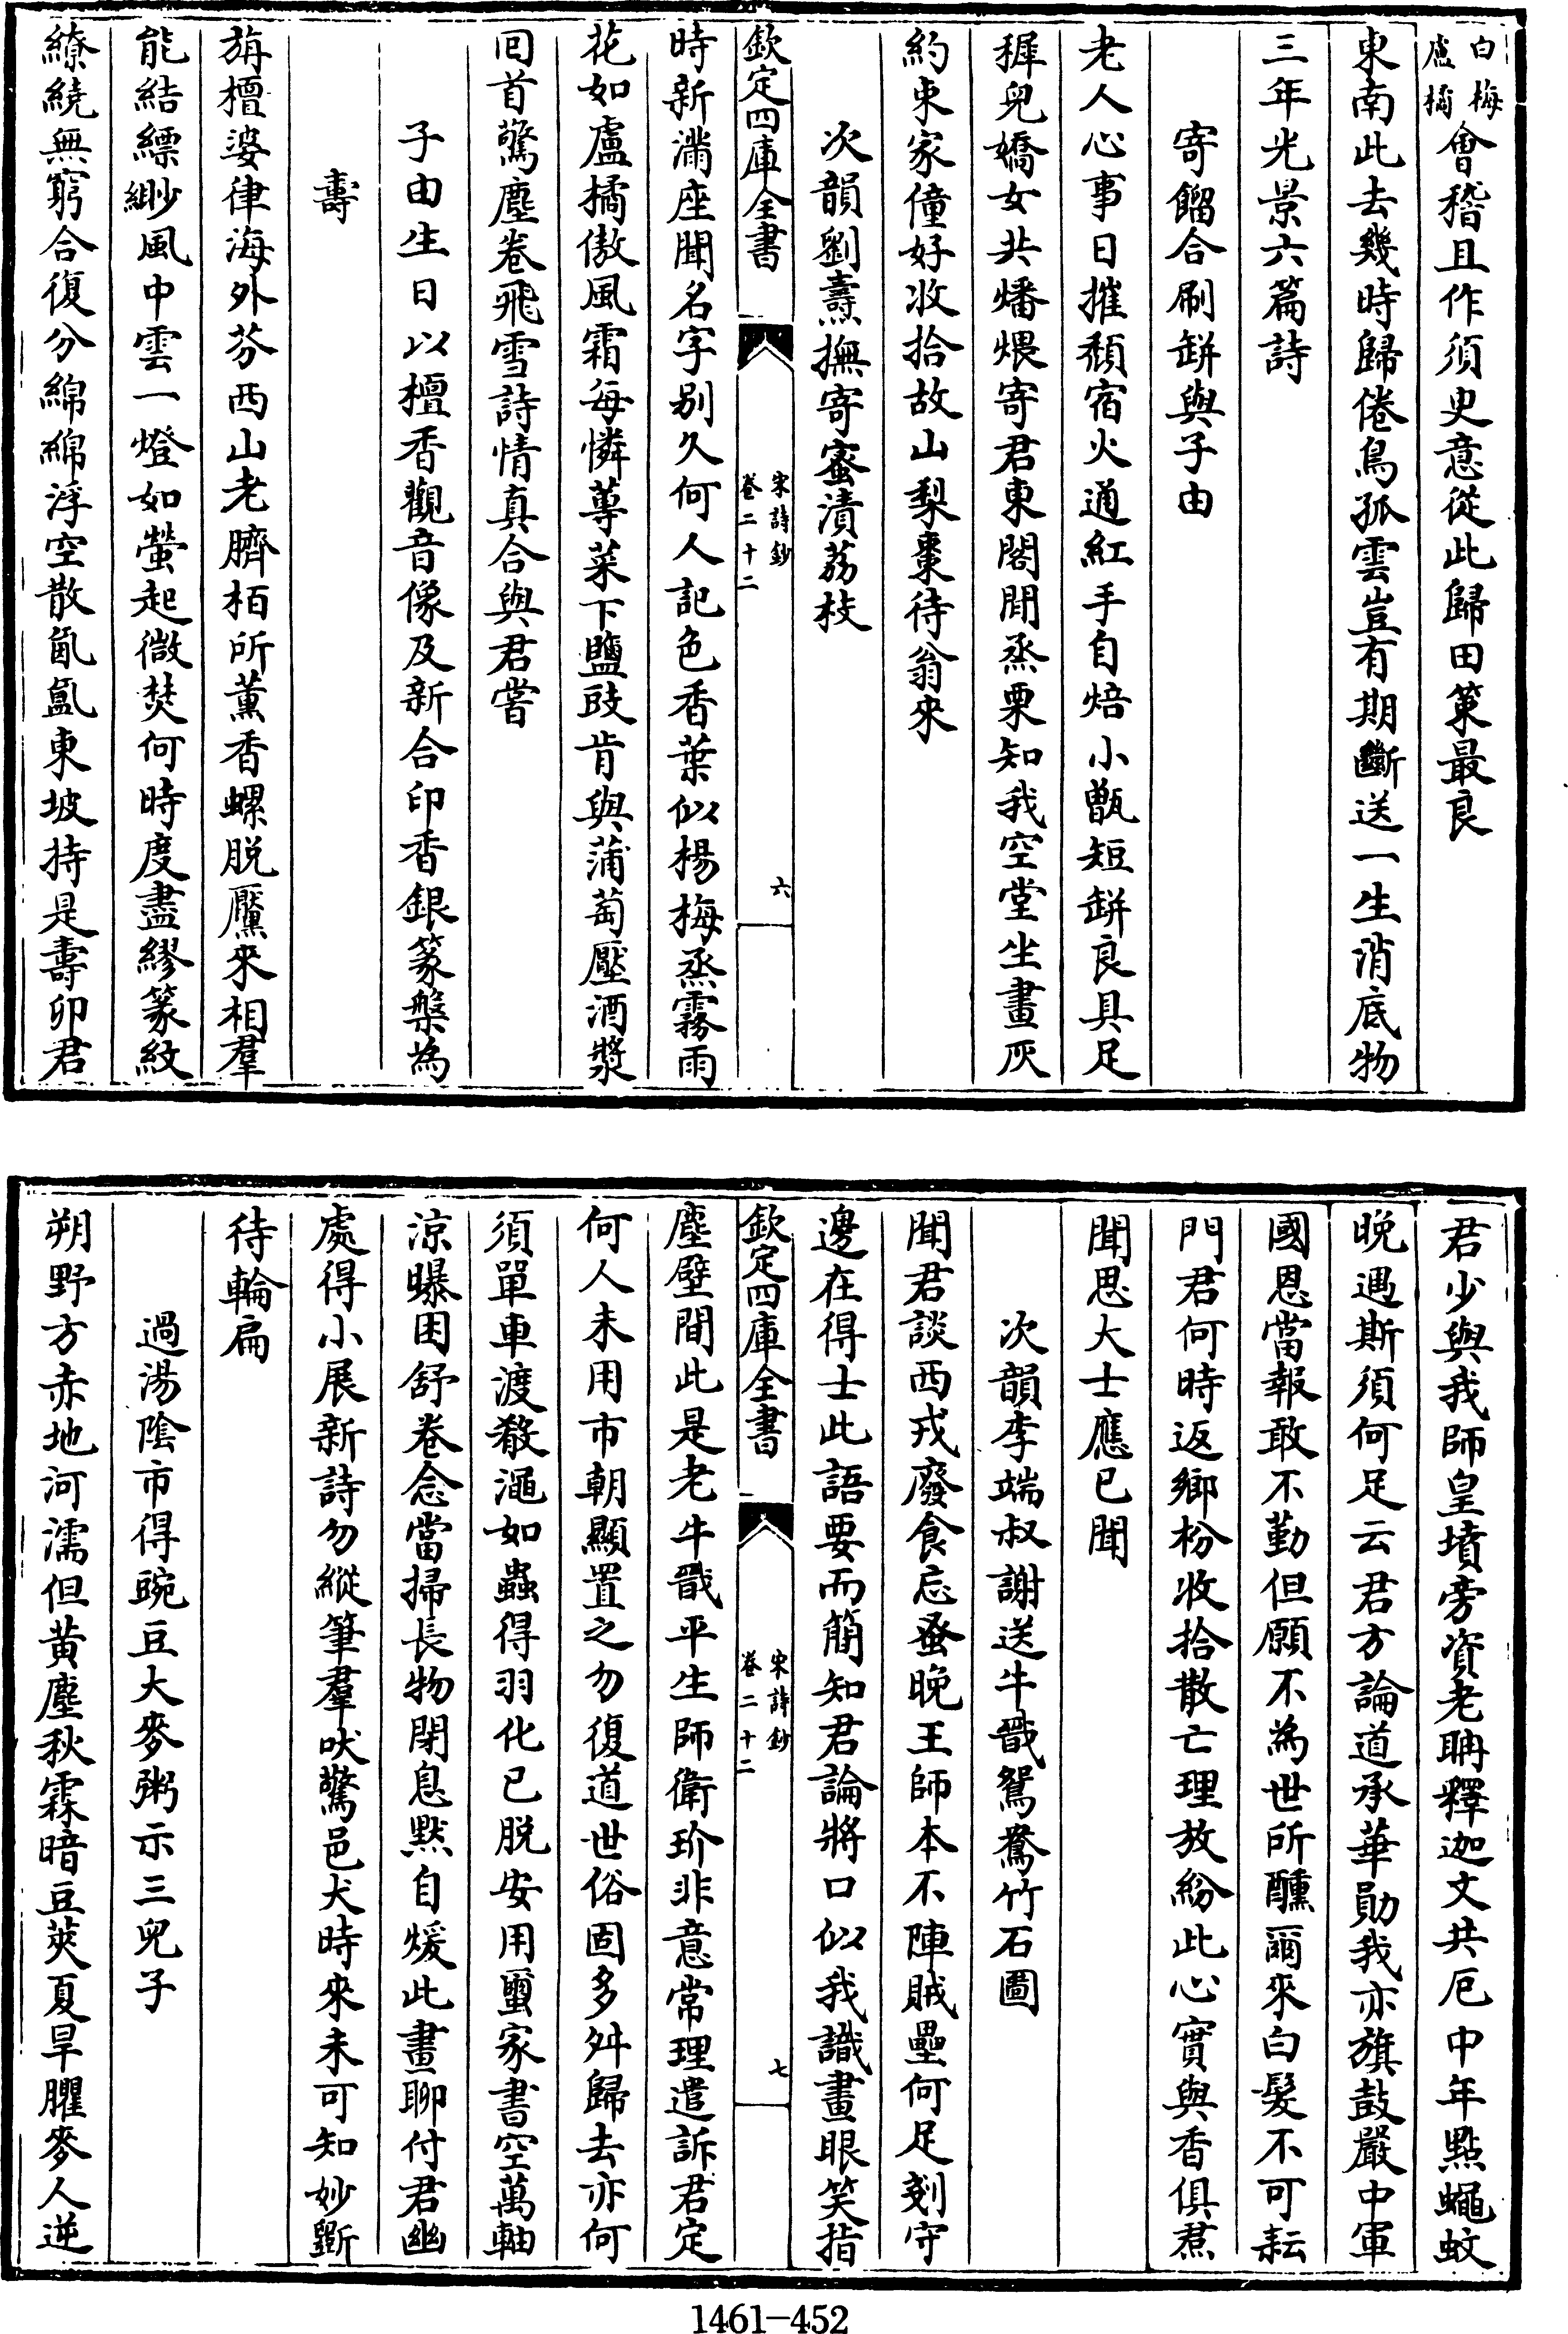 白梅盧橘會稽且作須臾意從此歸田策最良
東南此去幾時歸倦鳥孤雲豈有期斷送一生消底物
三年光景六篇詩
寄餾合刷缾與子由
老人心事日摧頹宿火通紅手自焙小甑短缾良具足
穉兒嬌女共燔煨寄君東閣閒烝栗知我空堂坐畫灰
約束家僮好收拾故山梨棗待翁來
次韻劉燾撫寄蜜漬荔枝
欽定四庫全書
宋詩鈔
卷二十二
六
時新滿座聞名字别久何人記色香葉似楊梅烝霧雨
花如盧橘傲風霜每憐蓴菜下鹽豉肯與蒲萄壓酒漿
回首驚塵卷飛雪詩情真合與君嘗
子由生日以檀香觀音像及新合印香銀篆槃為
壽
旃檀婆律海外芬西山老臍栢所薰香螺脱黶來相羣
能結縹緲風中雲一燈如螢起微焚何時度盡繆篆紋
繚繞無窮合復分綿綿浮空散氤氳東坡持是壽卯君
君少與我師皇墳旁資老聃釋迦文共厄中年點蠅蚊
晚遇斯須何足云君方論道承華勛我亦旗鼓嚴中軍
國恩當報敢不勤但願不為世所醺爾來白髮不可耘
門君何時返鄉枌收拾散亡理放紛此心實與香俱焄
聞思大士應已聞
次韻李端叔謝送牛戩鴛鴦竹石圖
聞君談西戎廢食忘蚤晚王師本不陣賊壘何足剗守
邊在得士此語要而簡知君論將口似我識畫眼笑指
欽定四庫全書
宋詩鈔
卷二十二
七
塵壁間此是老牛戩平生師衛玠非意常理遣訴君定
何人未用市朝顯置之勿復道世俗固多舛歸去亦何
須單車渡殽澠如蟲得羽化已脱安用蠒家書空萬軸
涼曝困舒卷念當掃長物閉息黙自煖此畫聊付君幽
處得小展新詩勿縱筆羣吠驚邑犬時來未可知妙斵
待輪扁
過湯陰市得豌豆大麥粥示三兒子
朔野方赤地河濡但黄塵秋霖暗豆莢夏旱臞麥人逆
1461-452